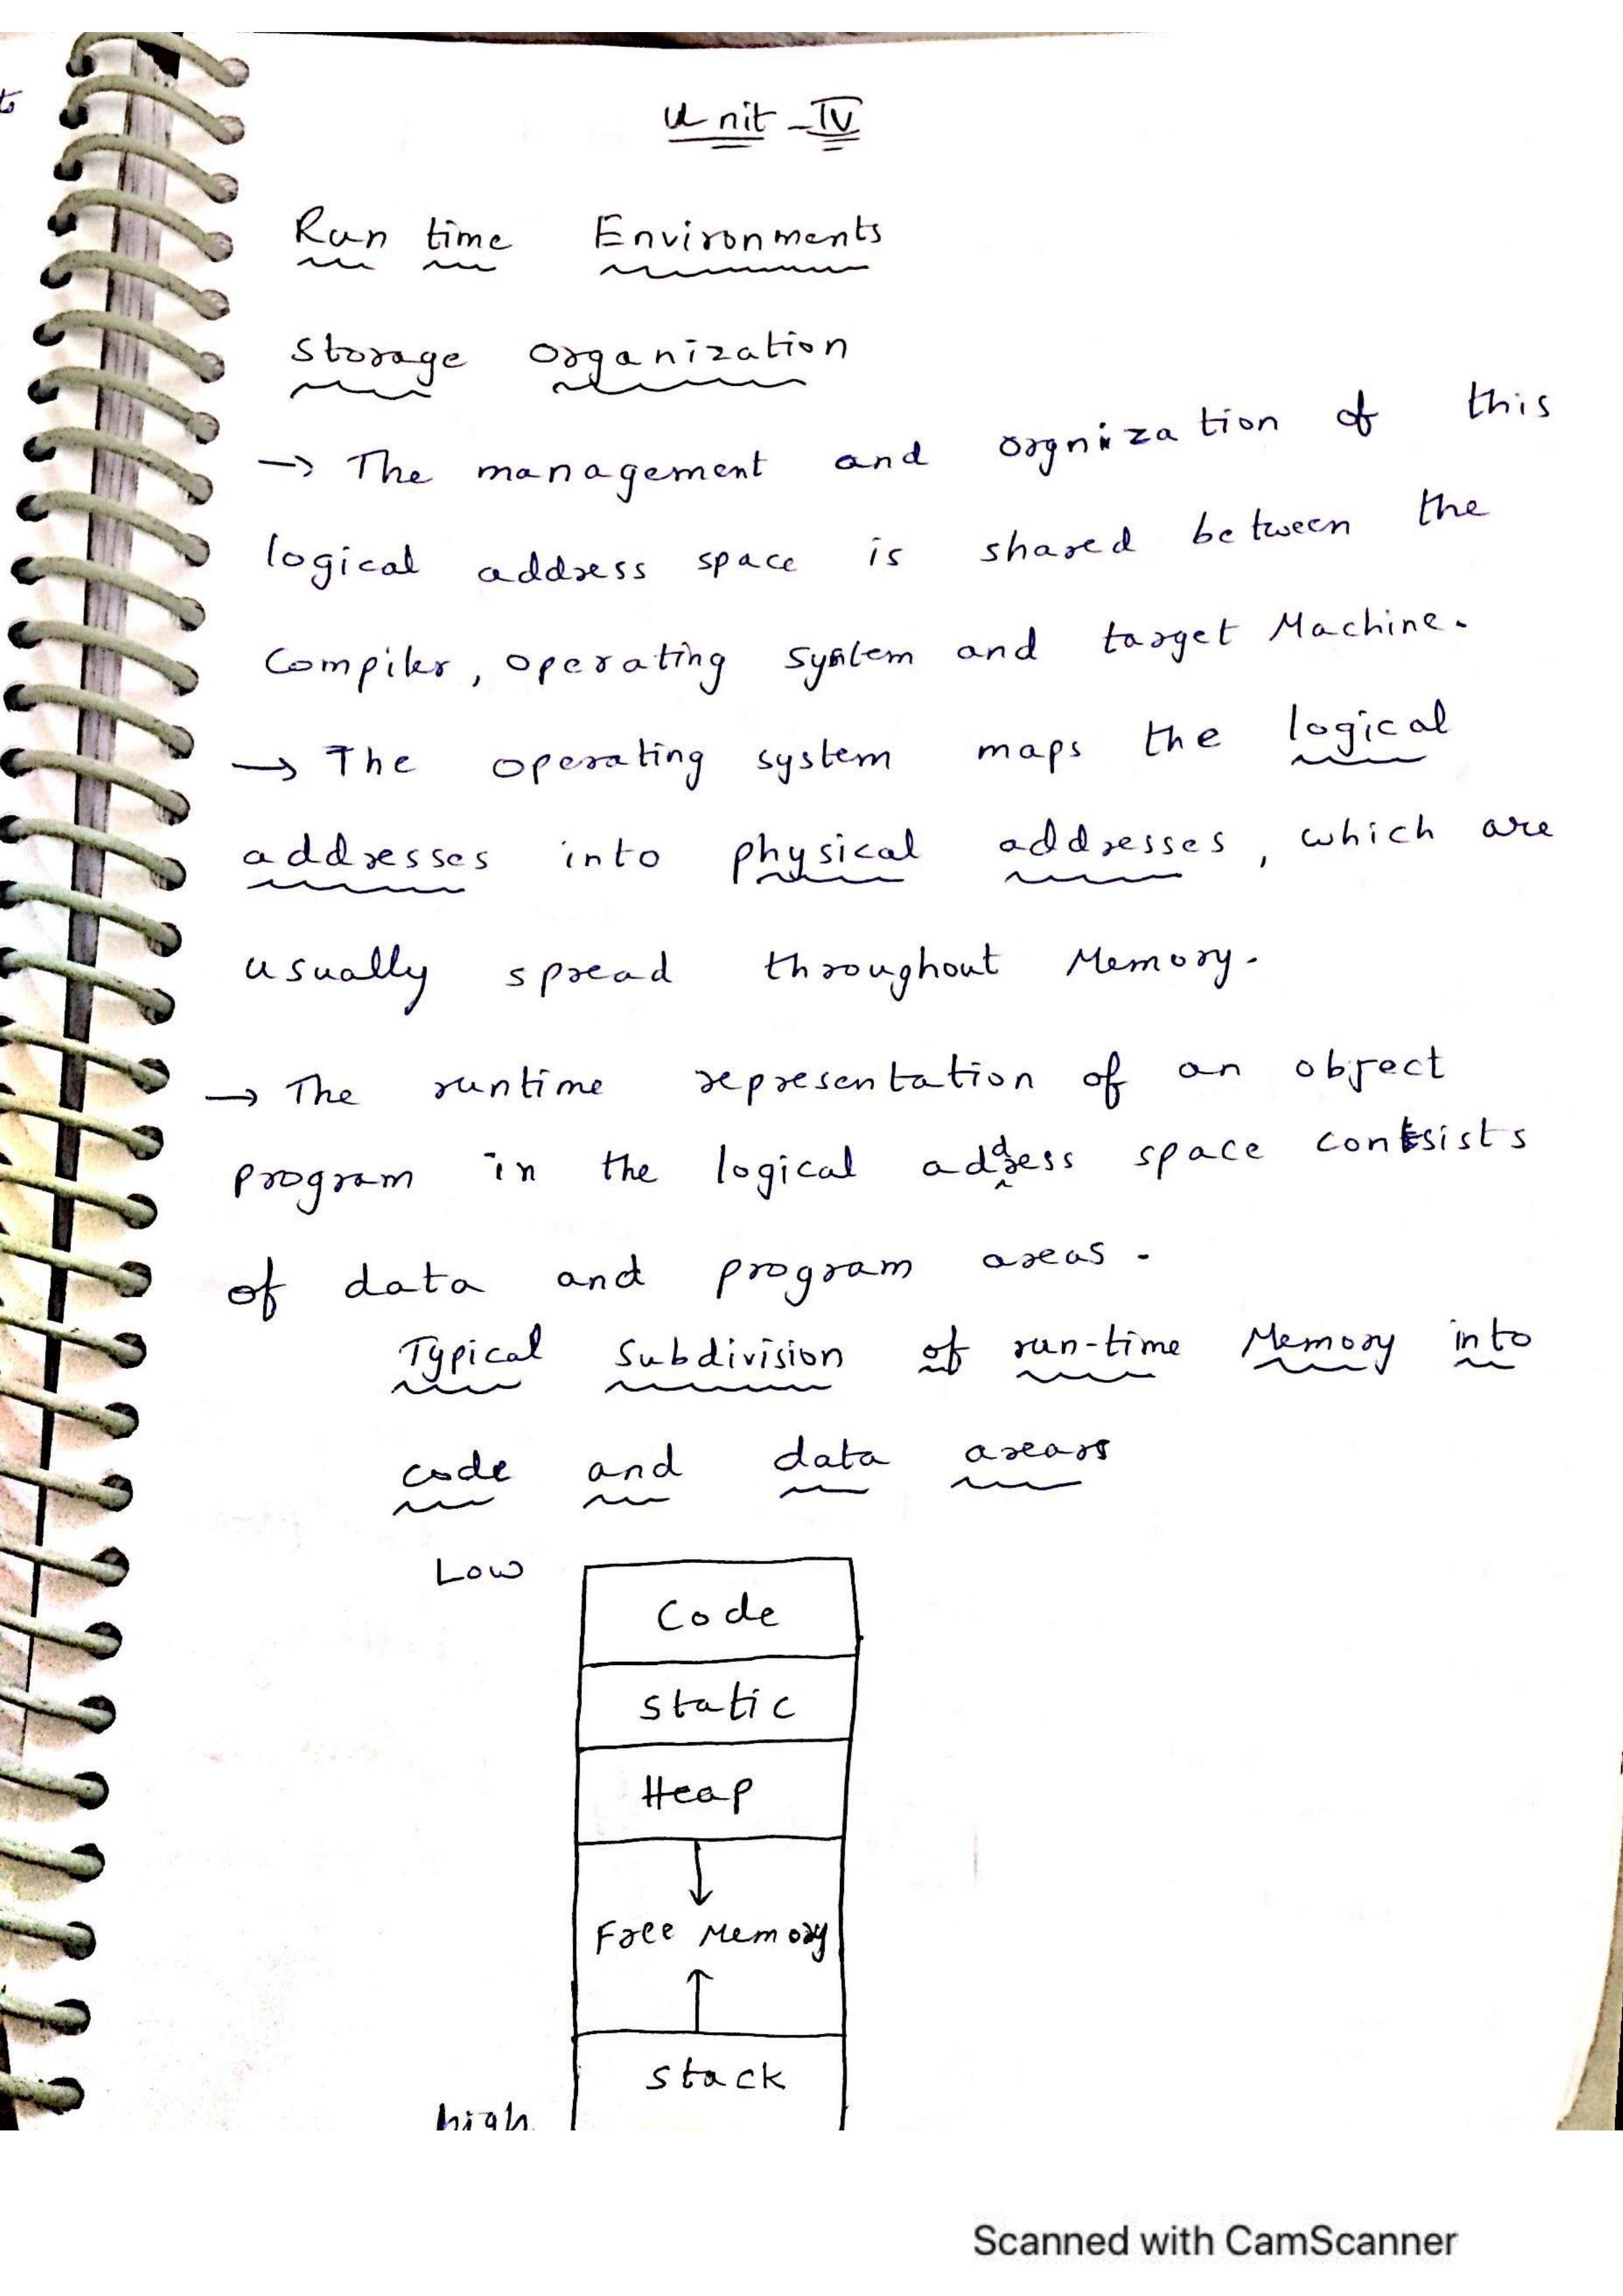 Unit - IV
Run time Environments
Storage Organization
→ The management and orgnization of this
logical address space is shared between the
Compiler, operating system and target Machine.
→ The operating system maps the logical
addresses into physical addresses, which are
usually spread throughout Memory.
→ The runtime representation of an object
program in the logical address space consists
of data and program areas.
Typical Subdivision of run-time Memory into
code and data areas
Low
Code
static
Heap
Free Memory
stack
high
Scanned with CamScanner